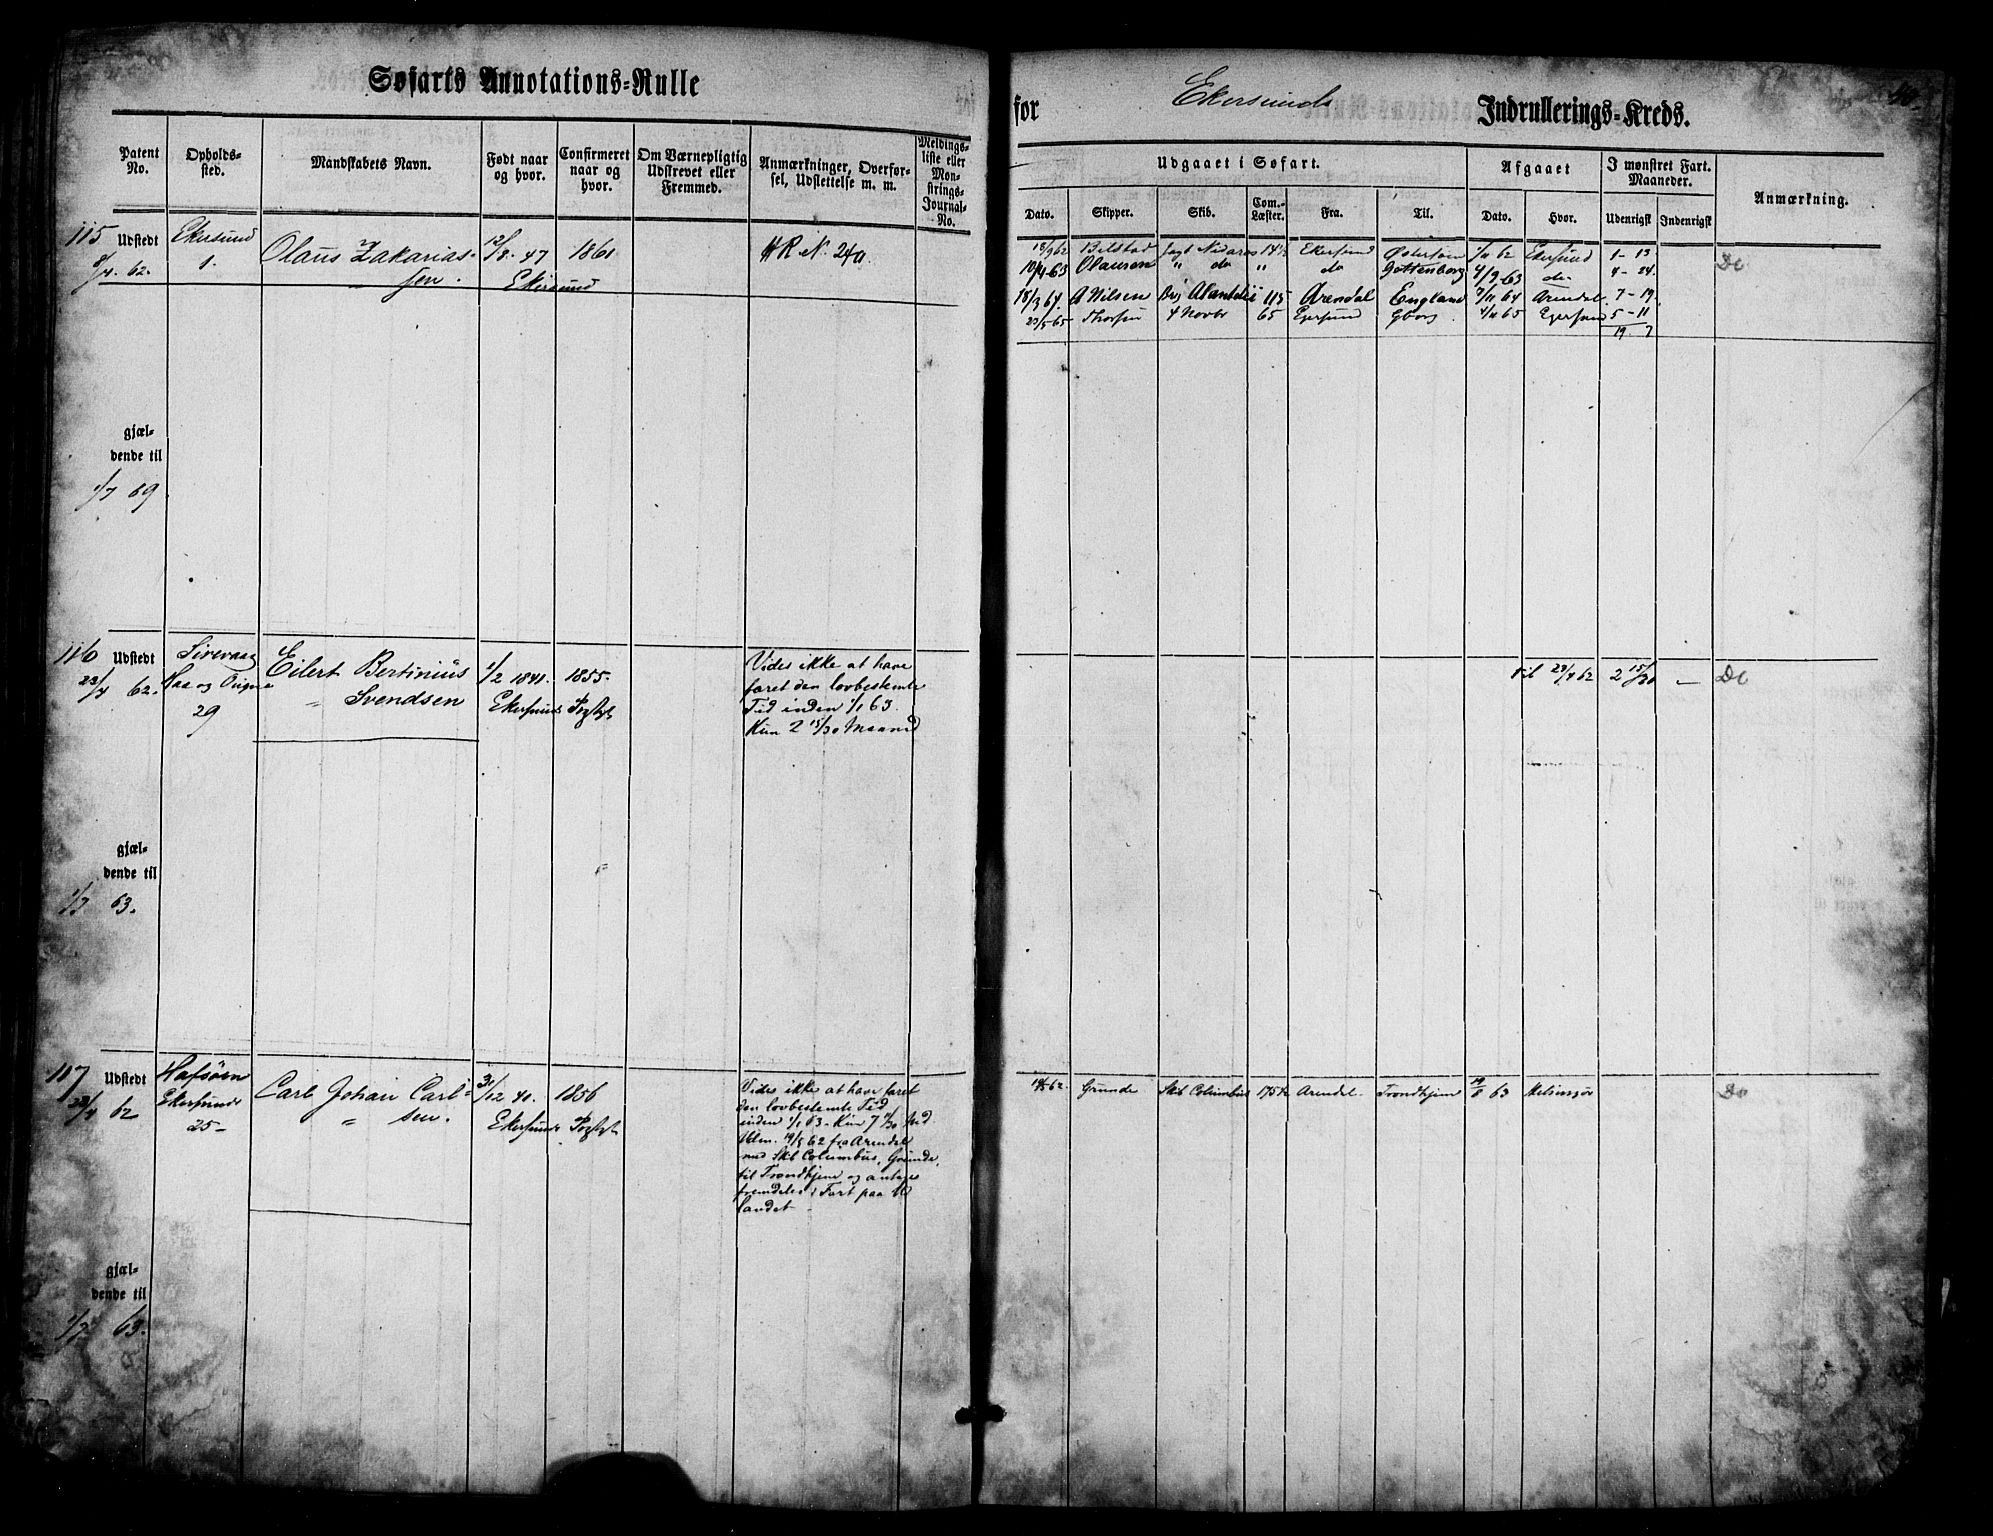 Søfarts Annotations-Rulle
for Ekersunds Indrullerings-Kreds.
Patent No.
Opholdssted.
Mandskabets Navn.
Født naar og hvor.
Confirmeret naar og hvor.
Om Værnepligtig Udskrevet eller Fremmed.
Anmærkninger, Overførsel, Udslettelse m. m.
Meldingsliste eller Mønstrings-Journal-No.
Udgaaet i Søfart.
Afgaaet
I mønstret Fart. Maaneder.
Anmærkning.
Dato.
Skipper.
Skib.
Com.-Læster.
Fra.
Til.
Dato.
Hvor.
Udenrigsk
Indenrigsk
115
Udstedt
8/4. 62.
Ekersund
1.
Olaus Zakarias-
sen.
12/8. 47
Ekersund
1861
HR No. 240.
18/9 62 Bilstad Jagt Nidaros 14½ Ekersund 1/11 62 Ekersund 1-13
10/4-63 Olausen " do " do Gottenborg 4/9-63 do 4-24
18/3 64. A Nilsen Brig 115 Arendal England 7/11 64 Arendal. 7-19
23/5-65 4 Novbr 65 Egersund Gborg 4/11 65 Egersund 5-11
19 7
gjæl-
dende til
1/7 69
116
Udstedt
23/4 62.
Sirevaag
Haa og Ougne
29
Eilert Bertinius
" Svendsen
1/2 1841.
Ekersund
1855.
Vides ikke at have
faret den lovbestemte
Tid inden 1/1 63.
Kun 2 15/30 Maaned
til 23/4 62 2 15/30 -
gjæl-
dende til
1/7 63.
117
Udstedt
23/4 62
Hafsøen
Ekersunds
25-
Carl Johan Carl-
" sen.
31/12 40.
Ekersunds
1856
Vides ikke at have faret
den lovbestemte Tid
inden 1/1 63 - Kun 7
19/5 62 fra Arendal
med Skb Columbus, Grunde,
til Trondhjem og antages
fremdeles i Fart paa Ud
landet -
19/5-62. Grunde Skb Columbus 175½ Arendal Trondhjem 19/8 63 Helsingør
Do
gjæl-
dende til
1/7 63.